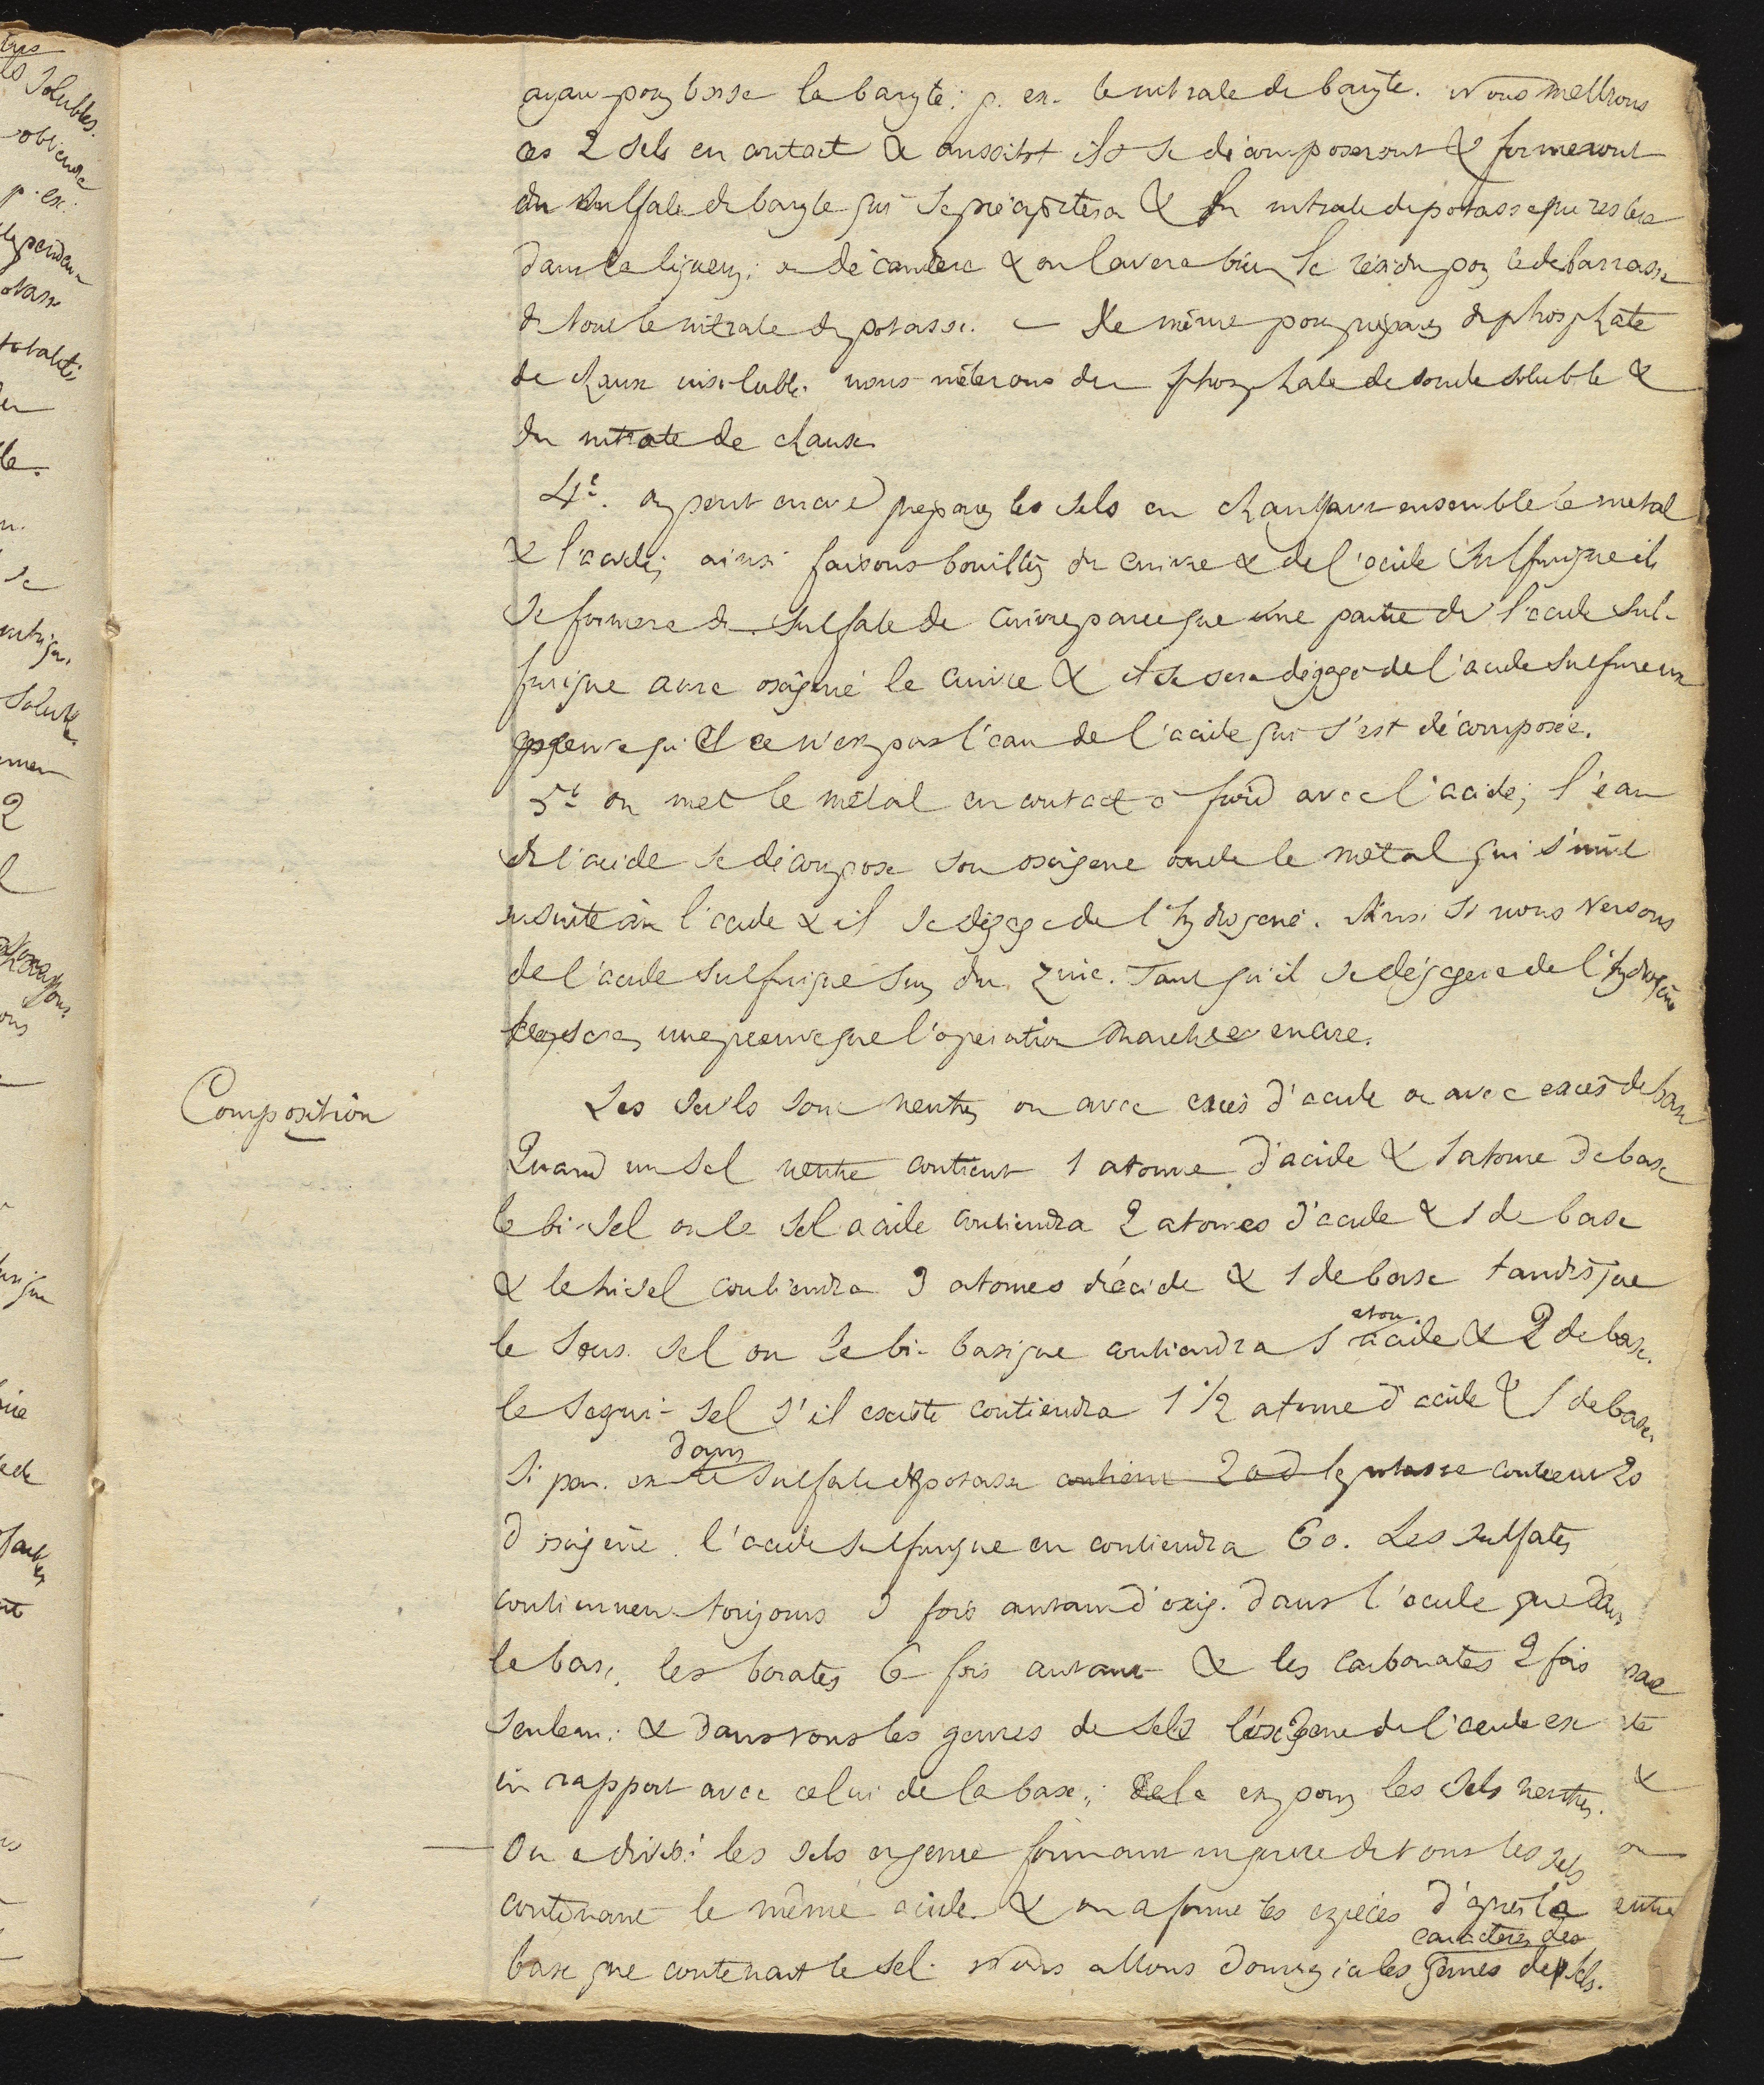 ayant pour base la baryte; p. ex. le nitrate de baryte. Nous mettrons
ces 2 sels en contact & aussitot ils se décomposeront & formeront
du sulfate de baryte qui se précipitera & du nitrate de potasse qui restera
dans la liqueur; on décantera & on lavera bien le résidu pour le debarrasser
de tout le nitrate de potasse. — De même pour préparer du phosphate
de chaux insoluble nous mêlerons du phosphate de soude soluble &
du nitrate de chaux.
4e. on peut encore préparer les sels en chauffant ensemble le metal
& l'acide; ainsi faisons bouillir du cuivre & de l'acide sulfurique il
se formera du sulfate de cuivre parce que une partie de l'acide sul-
furique aura oxigené le cuivre & il se sera dégagé de l'acide sulfureux
preuve que ce n'est pas l'eau de l'acide qui s'est décomposée.
5e on met le métal en contact à froid avec l'acide; l'eau
de l'acide se décompose son oxigene oxide le métal qui s'unit
ensuite à l'acide & il se dégage de l'hydrogene. Ainsi si nous versons
de l'acide sulfurique sur du zinc. Tant qu'il se dégagera de l'hydrogène
ce sera une preuve que l'operation marche encore.
Composition
Les sels sont neutres ou avec excès d'acide ou avec excès de base
Quand un sel neutre contient 1 atome d'acide & 1 atome de base
le bi-sel ou le sel acide contiendra 2 atomes d'acide & 1 de base
& le trisel contiendra 3 atomes d'acide & 1 de base tandis que
le sous sel ou le bi-basique contiendra 1 atom. acide & 2 de base.
le sesqui-sel s'il existe contiendra 1 1/2 atome d'acide & 1 de base.
Si par ex dans le sulfate de potasse contient 20 d la potasse contient 20
d'oxigène l'acide sulfurique en contiendra 60. Les sulfates
contiennent toujours 3 fois autant d'oxig. dans l'acide que dans
la base, les borates 6 fois autant & les carbonates 2 fois
seulem: & dans tous les genres de sels l'oxigene de l'acide est
en rapport avec celui de la base; cela est pour les sels neutres.
— On a divisé les sels en genre formant un genre de tous les sels
contenant le même acide & on a formé les espèces d'après la
base que contenait le sel. Nous allons donner ici les caractères des genres de sels.